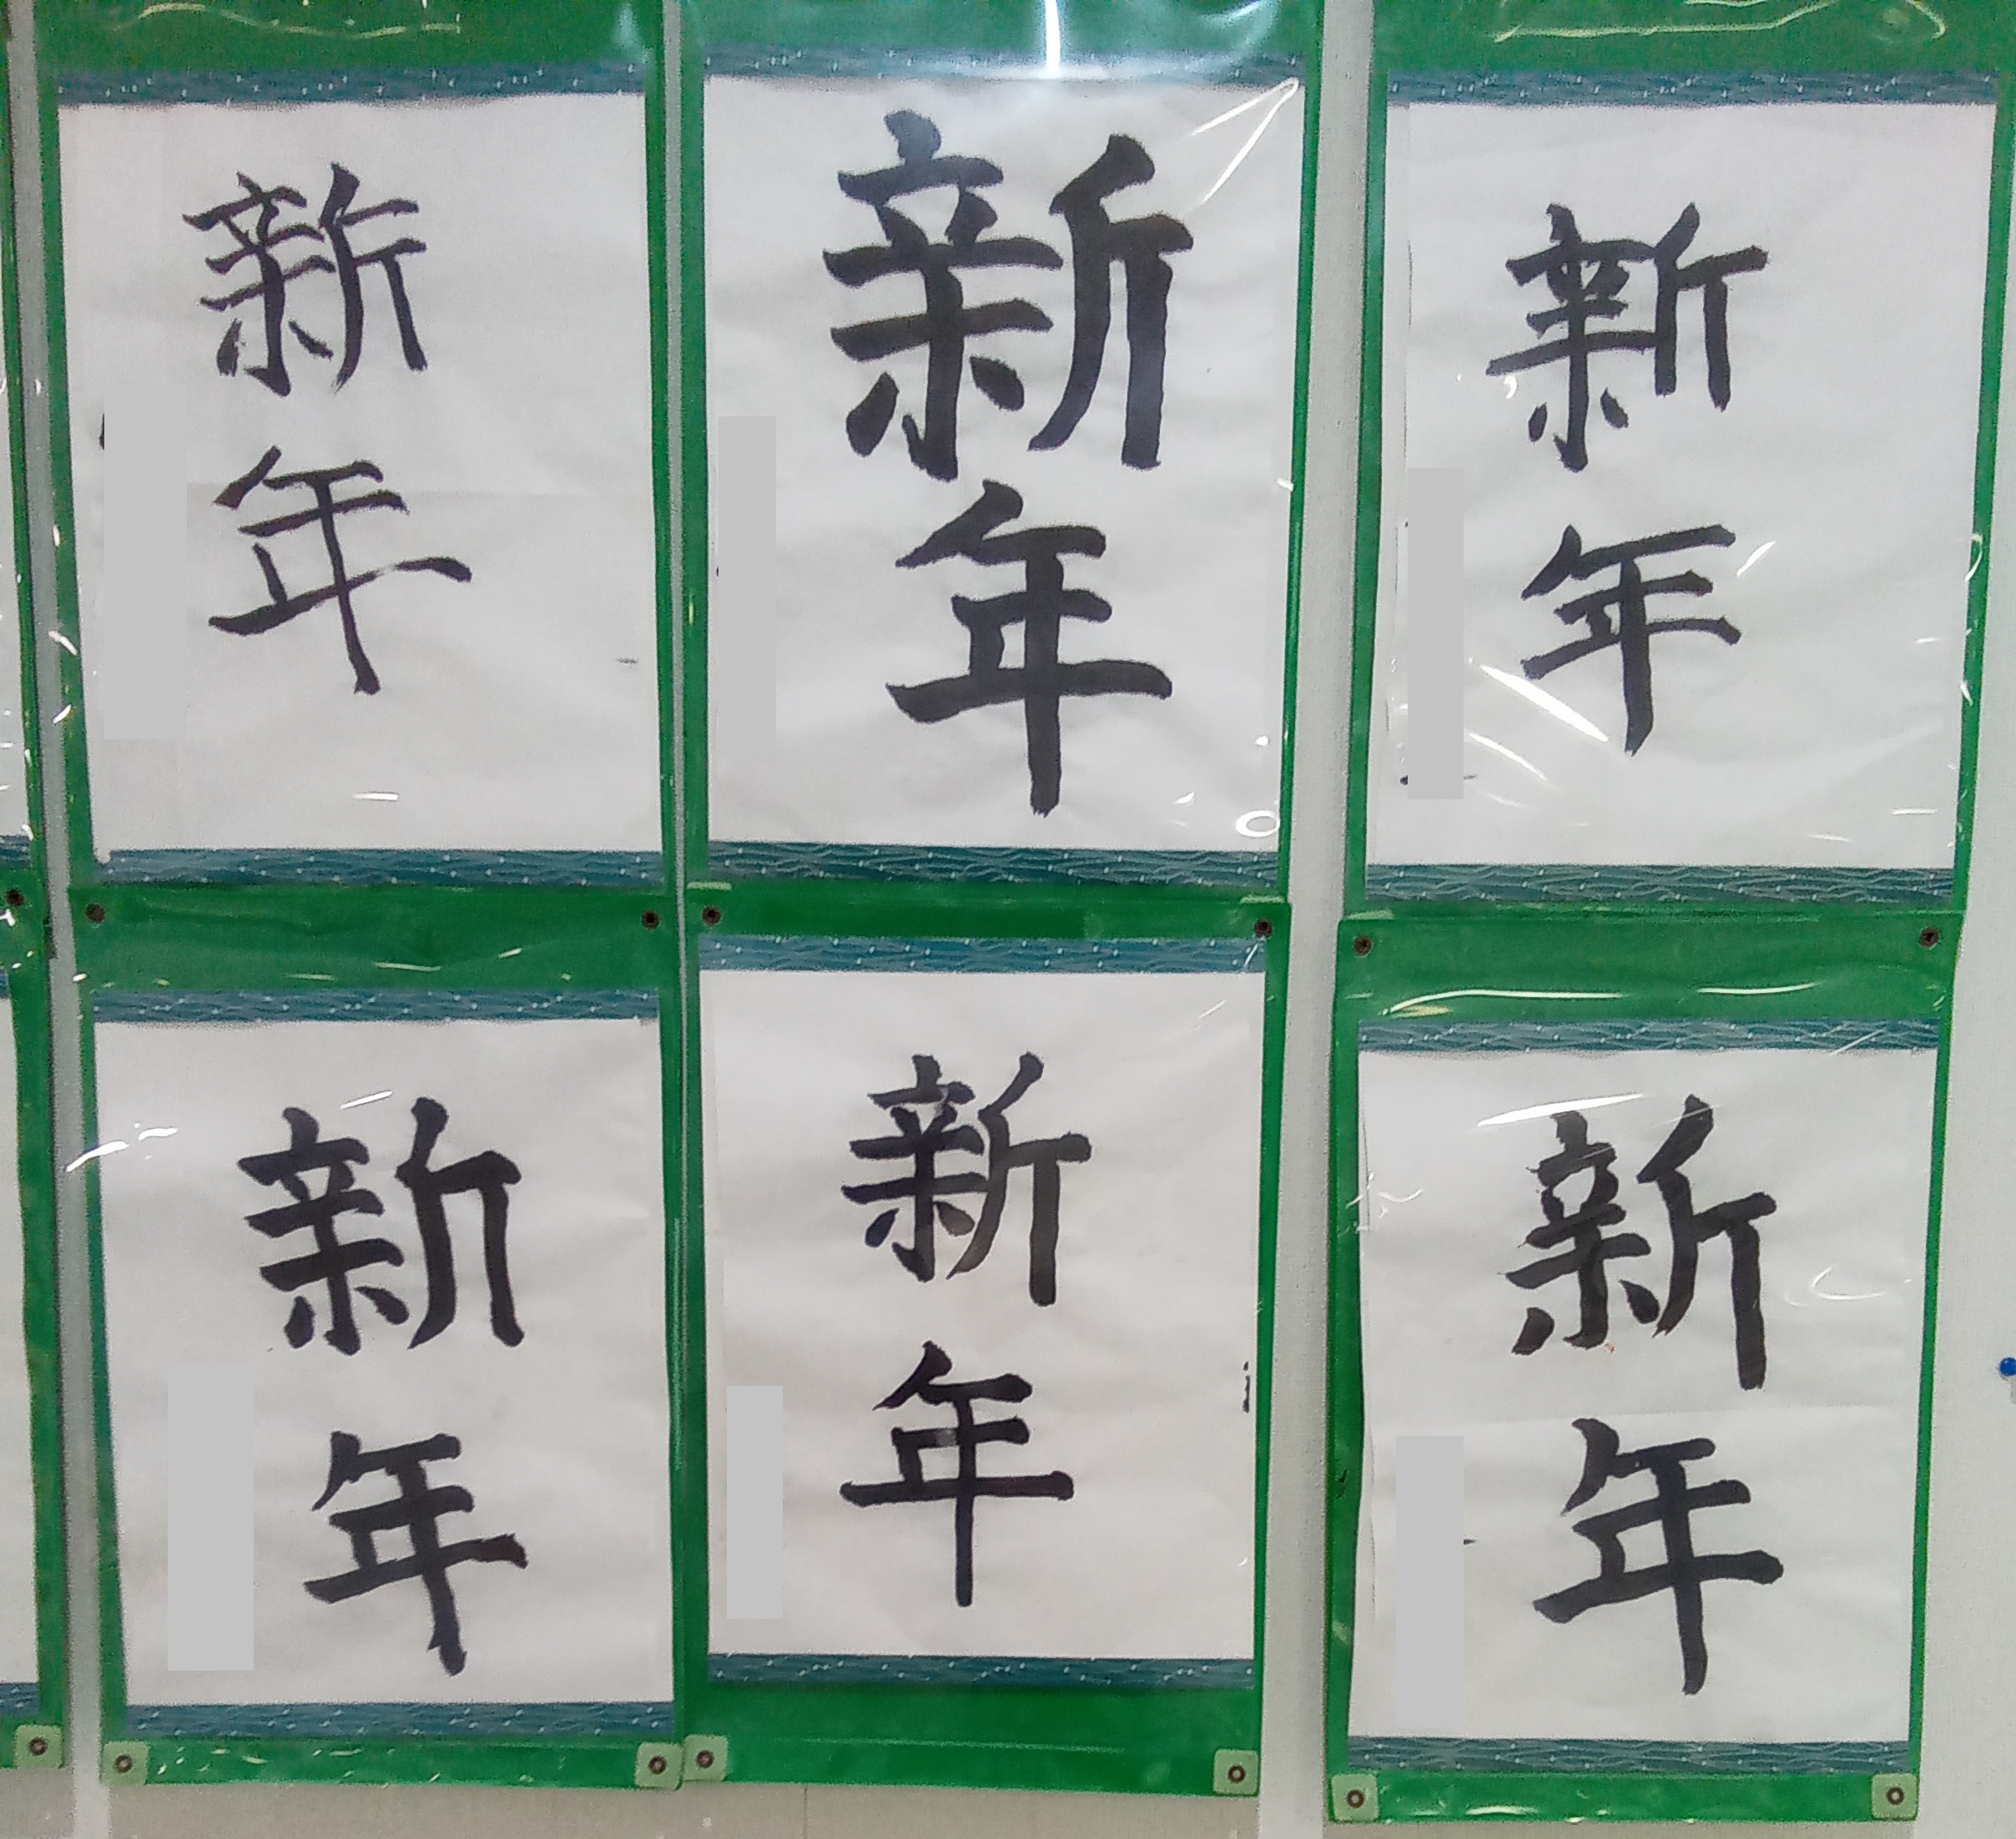 新年
新年
新年
新年
新年
新年